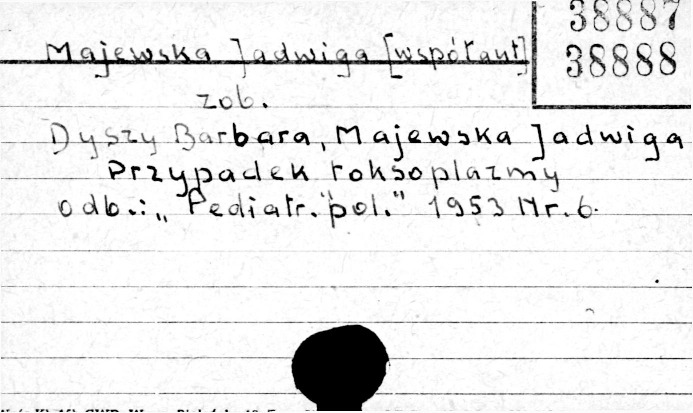 38887
38888
Majewska Jadwiga [współaut]
zob.
Dyszy Barbara, Majewska Jadwiga
Przypadek toksoplazmy
odb.: „Pediatr. pol." 1953 Nr. 6.